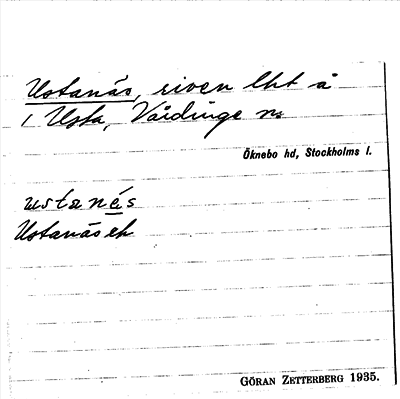 Ustanäs, riven lht å
i Usta, Vårdinge sn
Öknebo hd, Stockholms l.
ustanés
Ustanäs ek
GÖRAN ZETTERBERG 1935.